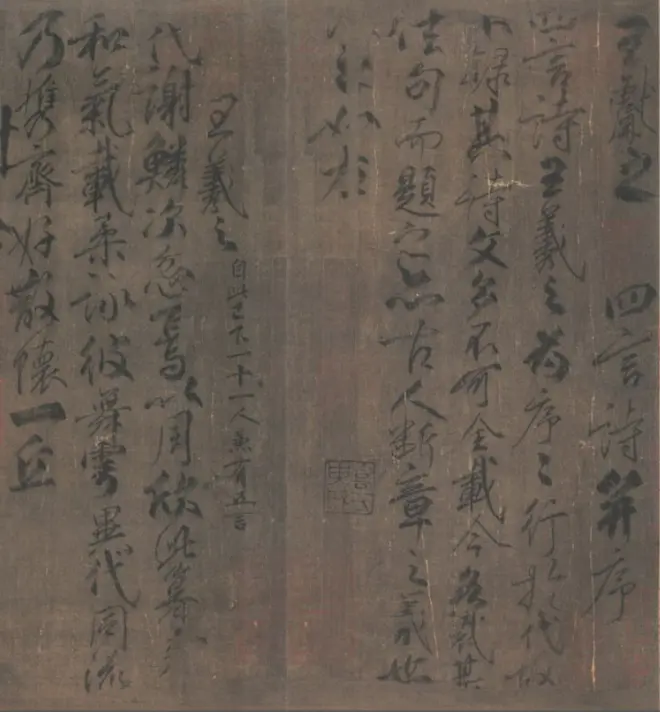 王獻之 四言詩并序
四言詩王羲之爲序〻行於代故
不錄其詩文多不可全載今各裁其
佳句而題之亦古人斷章之義也
之如左
王羲之 自此已下一十一人兼有五言
代謝鱗次忽焉以周欣此暮春
和氣載柔詠彼舞雩異代同流
乃攜齊好散懷一丘